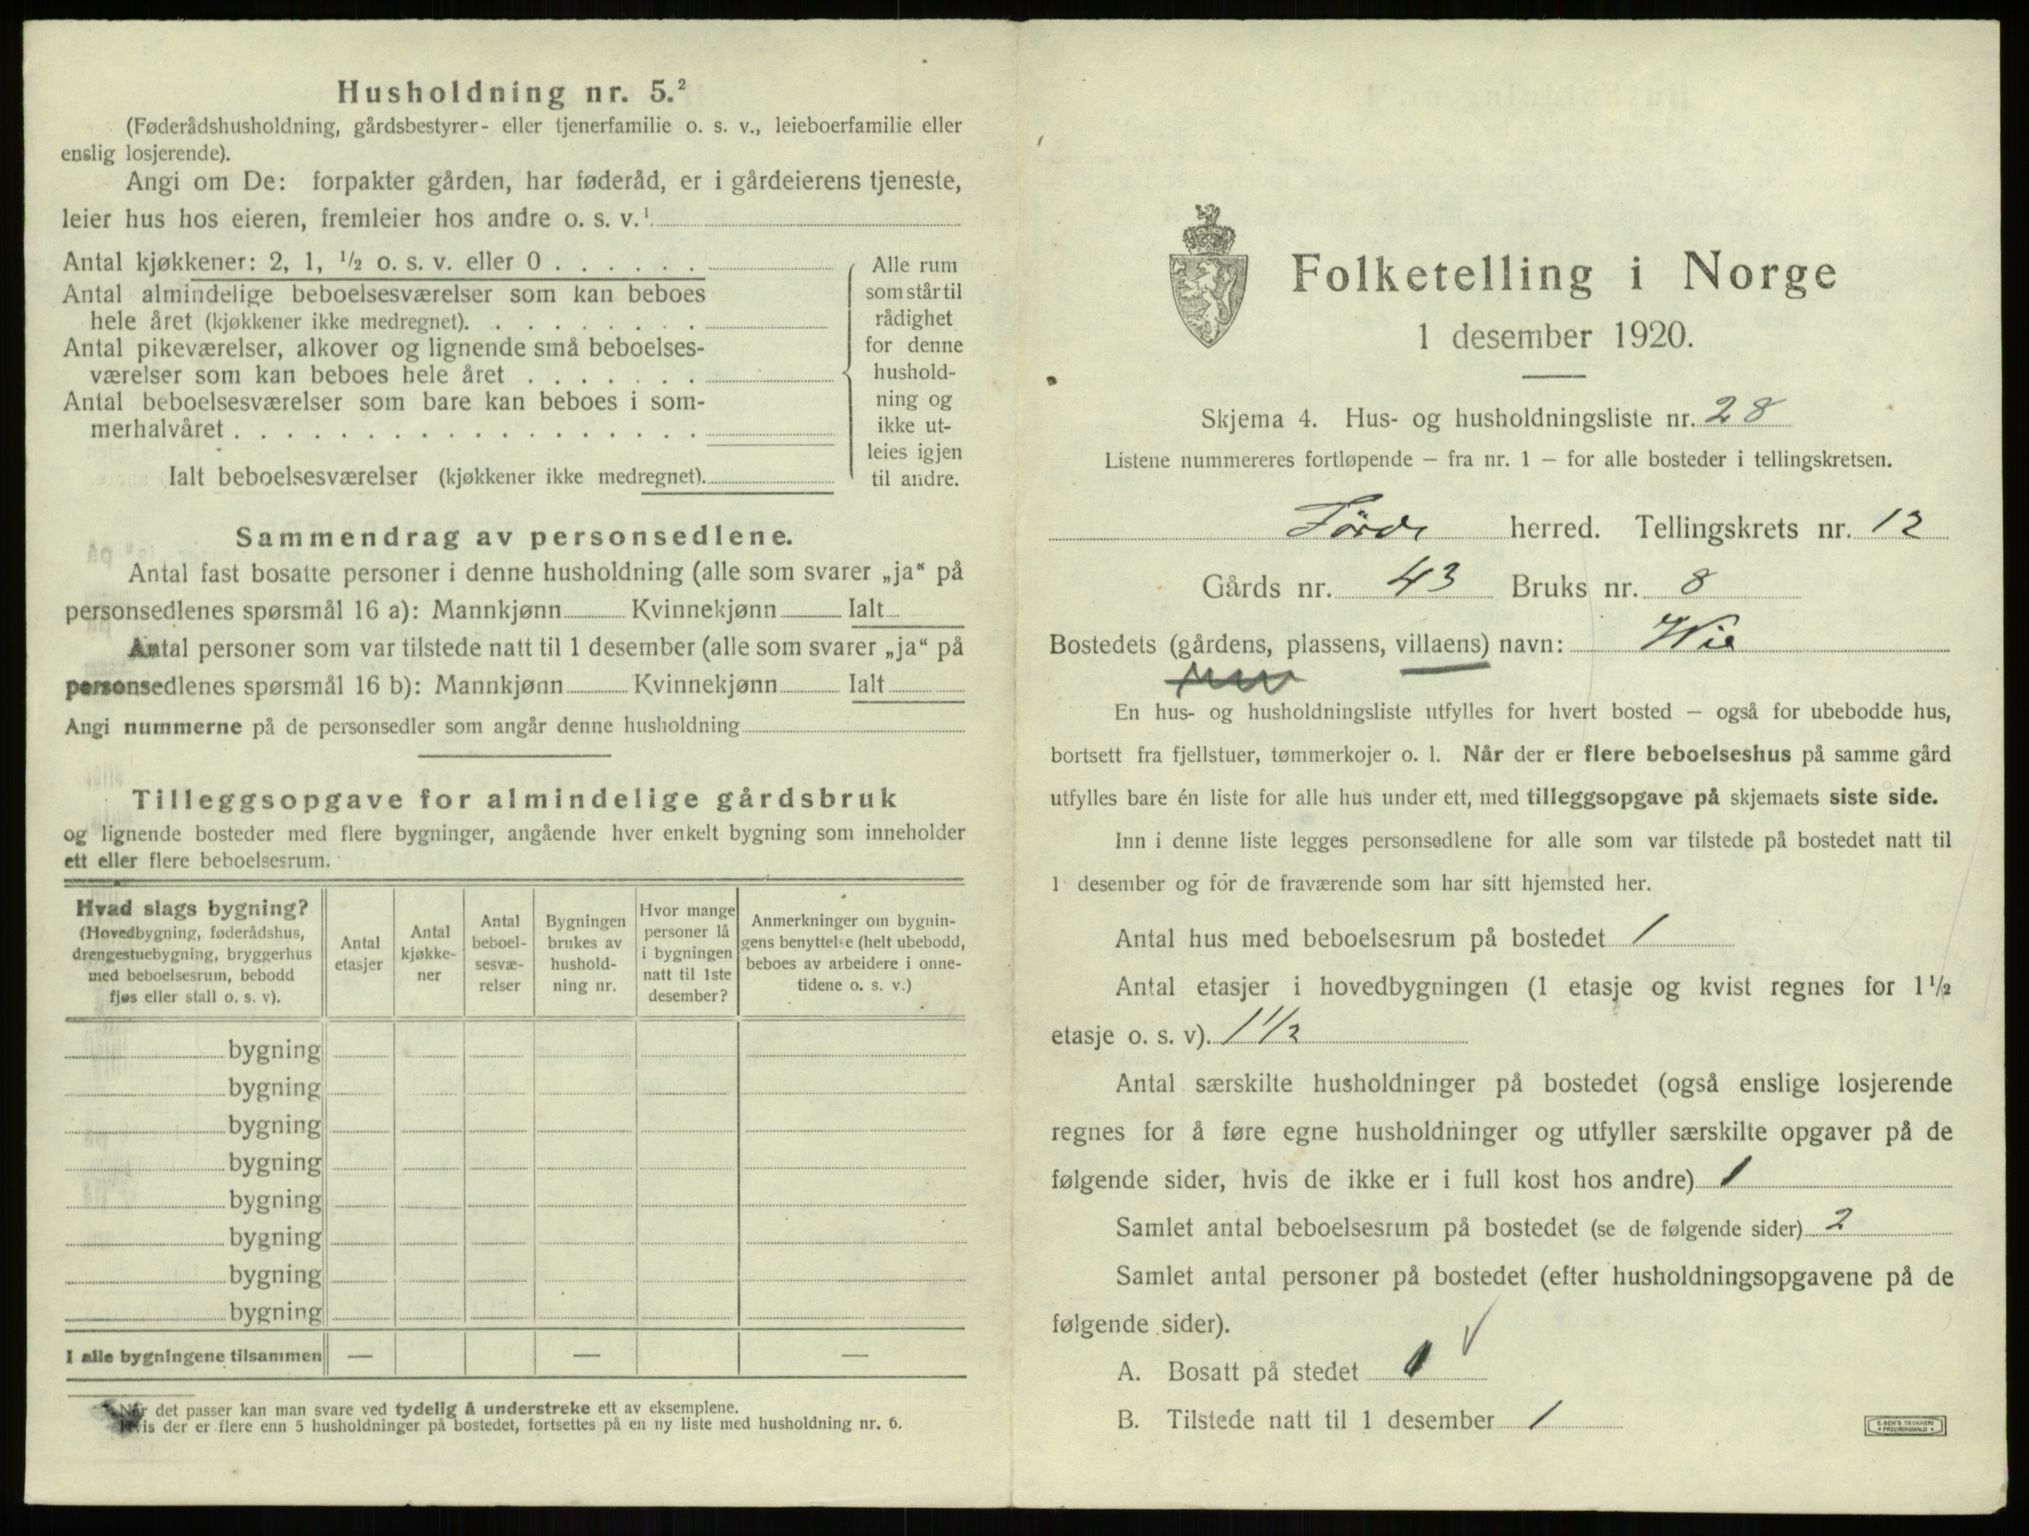 Husholdning nr. 5.²
(Føderådshusholdning, gårdsbestyrer- eller tjenerfamilie o. s. v., leieboerfamilie eller
enslig losjerende).
Angi om De: forpakter gården, har føderåd, er i gårdeierens tjeneste,
leier hus hos eieren, fremleier hos andre o. s. v.¹
Antal kjøkkener: 2, 1, ½ o. s. v. eller 0 . . . . . .
Antal almindelige beboelsesværelser som kan beboes
hele året (kjøkkener ikke medregnet). . . . . . . . .
Antal pikeværelser, alkover og lignende små beboelses-
værelser som kan beboes hele året . . . . . . .
Antal beboelsesværelser som bare kan beboes i som-
merhalvåret . . . . . . . . . . . . . . . . . .
Ialt beboelsesværelser (kjøkkener ikke medregnet).
Alle rum
som står til
rådighet
for denne
hushold-
ning og
ikke ut-
leies igjen
til andre.
Sammendrag av personsedlene.
Antal fast bosatte personer i denne husholdning (alle som svarer „ja“ på
personsedlenes spørsmål 16 a): Mannkjønn Kvinnekjønn Ialt
Antal personer som var tilstede natt til 1 desember (alle som svarer „ja“ på
personsedlenes spørsmål 16 b): Mannkjønn Kvinnekjønn Ialt
Angi nummerne på de personsedler som angår denne husholdning
Tilleggsopgave for almindelige gårdsbruk
og lignende bosteder med flere bygninger, angående hver enkelt bygning som inneholder
ett eller flere beboelsesrum.
Hvad slags bygning?
(Hovedbygning, føderådshus,
drengestuebygning, bryggerhus
med beboelsesrum, bebodd
fjøs eller stall o. s. v).
Antal
etasjer
Antal
kjøkke-
ner
Antal
beboel-
sesvæ-
relser
Bygningen
brukes av
hushold-
ning nr.
Hvor mange
personer lå
i bygningen
natt til 1ste
desember?
Anmerkninger om bygnin-
gens benyttelse (helt ubebodd,
beboes av arbeidere i onne-
tidene o. s. v.)
bygning
bygning
bygning
bygning
bygning
bygning
bygning
bygning
I alle bygningene tilsammen — — —
Når det passer kan man svare ved tydelig å understreke ett av eksemplene.
Hvis der er flere enn 5 husholdninger på bostedet, fortsettes på en ny liste med husholdning nr. 6.
Folketelling i Norge
1 desember 1920.
Skjema 4. Hus- og husholdningsliste nr. 28
Listene nummereres fortløpende – fra nr. 1 – for alle bosteder i tellingskretsen.
Førde herred. Tellingskrets nr. 12
Gårds nr. 43 Bruks nr. 8
Bostedets (gårdens, plassens, villaens) navn: Wie
En hus- og husholdningsliste utfylles for hvert bosted – også for ubebodde hus,
bortsett fra fjellstuer, tømmerkojer o. l. Når der er flere beboelseshus på samme gård
utfylles bare én liste for alle hus under ett, med tilleggsopgave på skjemaets siste side.
Inn i denne liste legges personsedlene for alle som var tilstede på bostedet natt til
1 desember og for de fraværende som har sitt hjemsted her.
Antal hus med beboelsesrum på bostedet 1
Antal etasjer i hovedbygningen (1 etasje og kvist regnes for 1½
etasje o. s. v). 1½
Antal særskilte husholdninger på bostedet (også enslige losjerende
regnes for å føre egne husholdninger og utfyller særskilte opgaver på de
følgende sider, hvis de ikke er i full kost hos andre) 1
Samlet antal beboelsesrum på bostedet (se de følgende sider) 2
Samlet antal personer på bostedet (efter husholdningsopgavene på de
følgende sider).
A. Bosatt på stedet
B. Tilstede natt til 1 desember 1